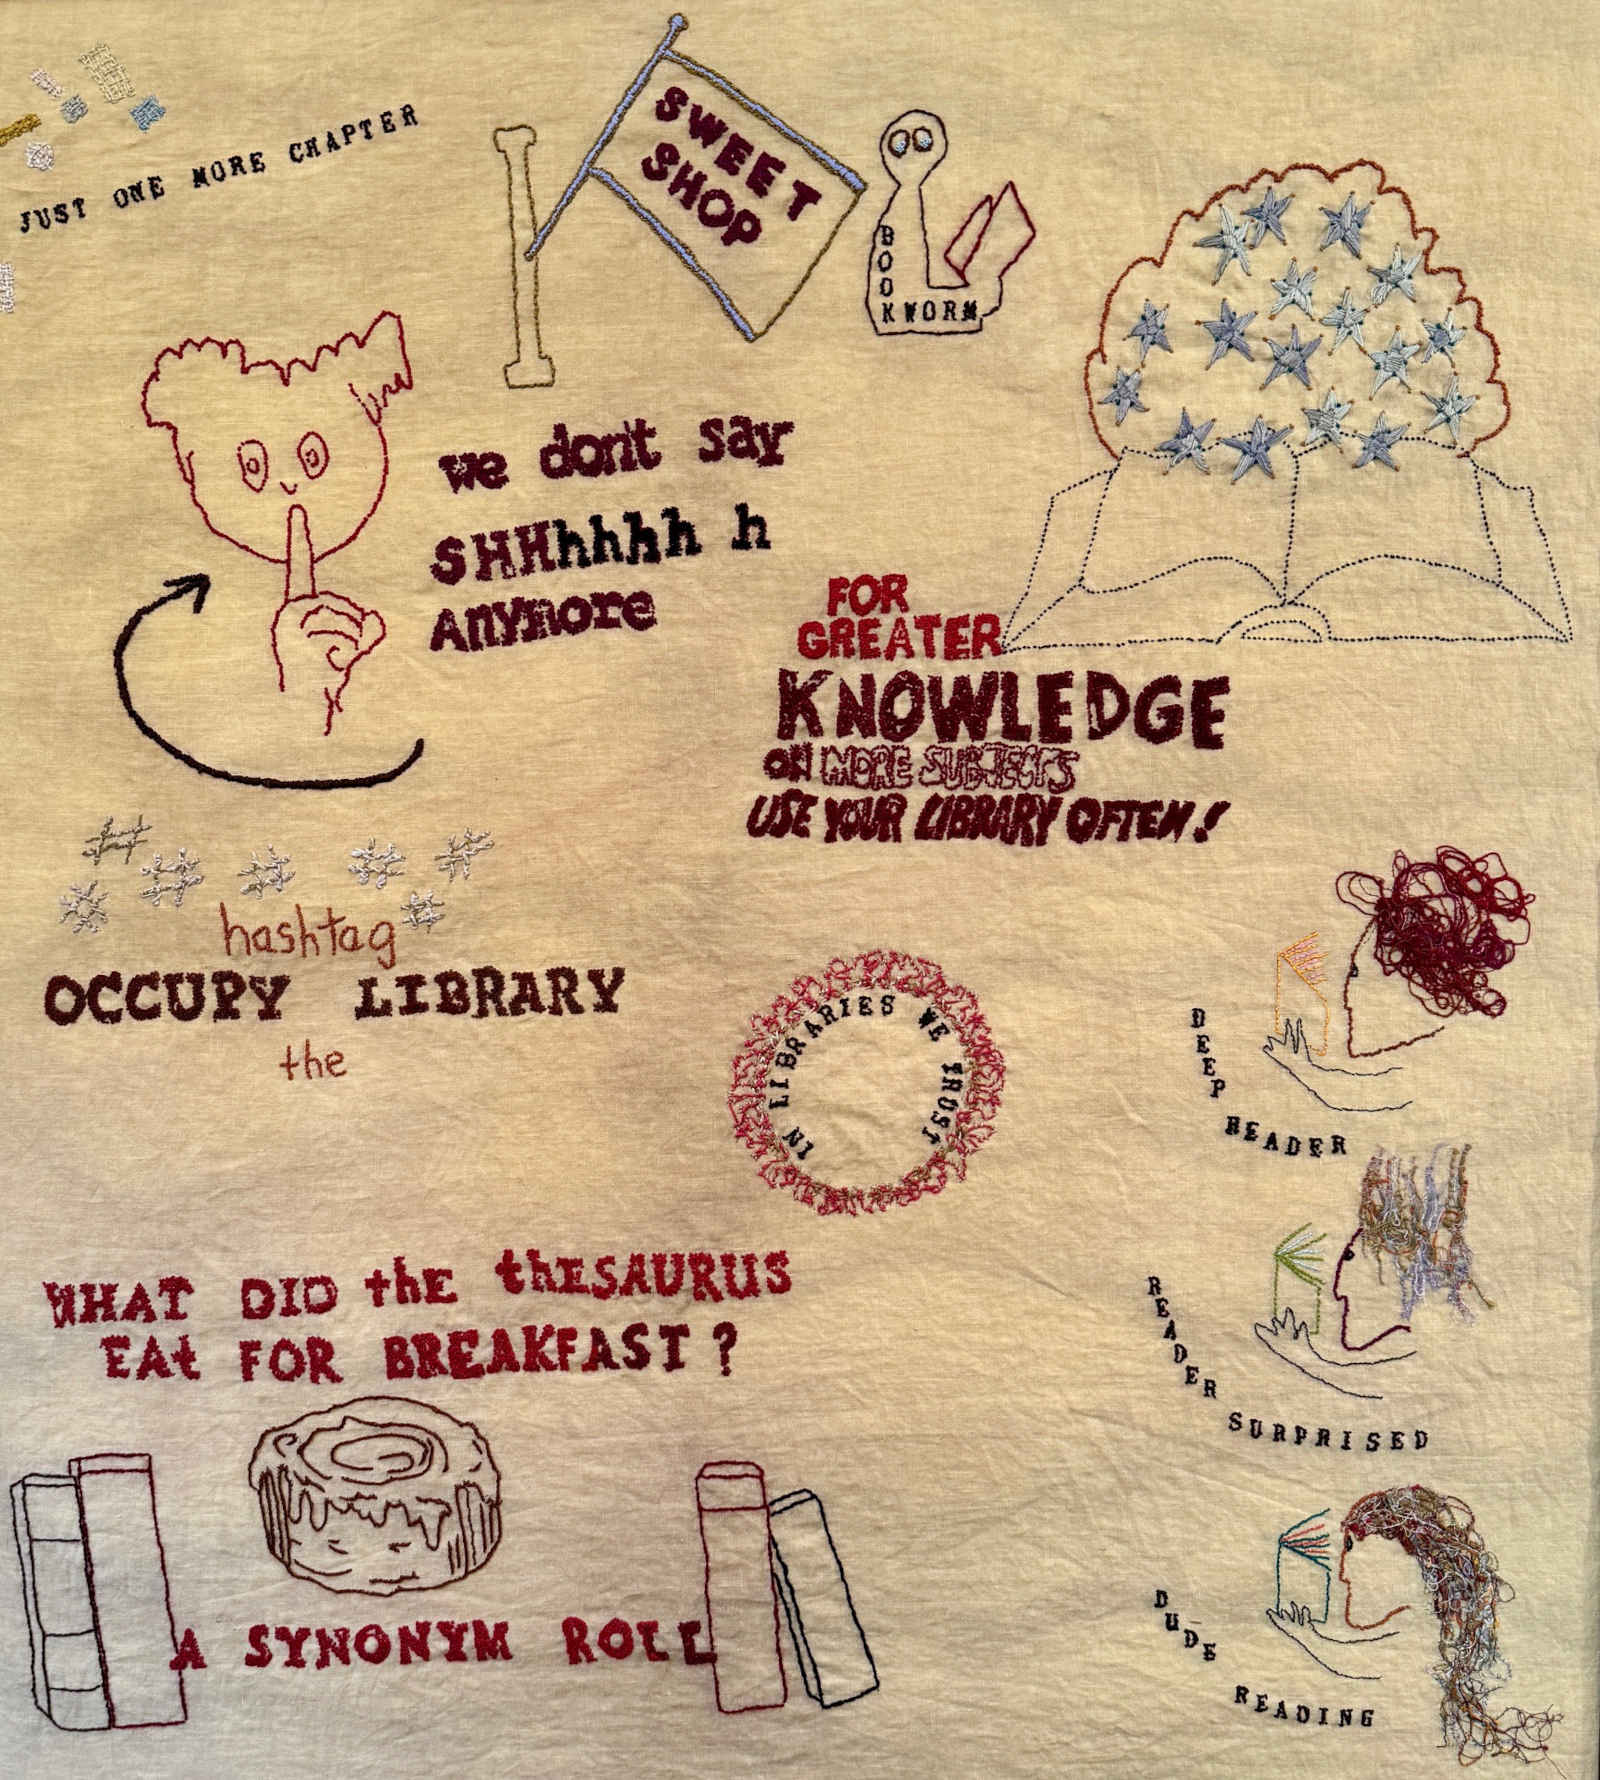 JUST ONE MORE CHAPTER
SWEET
SHOP
BOOKWORM
we don't say
SHHhhhhh h
Anymore
FOR
GREATER
KNOWLEDGE
ON MORE SUBJECTS
USE YOUR LIBRARY OFTEN!
hashtag
OCCUPY LIBRARY
the
IN LIBRARIES WE TRUST
DEEP READER
READER SURPRISED
WHAT DID thE thESAURUS
EAt FOR BREAKFAST?
A SYNONYM ROLL
DUDE READING